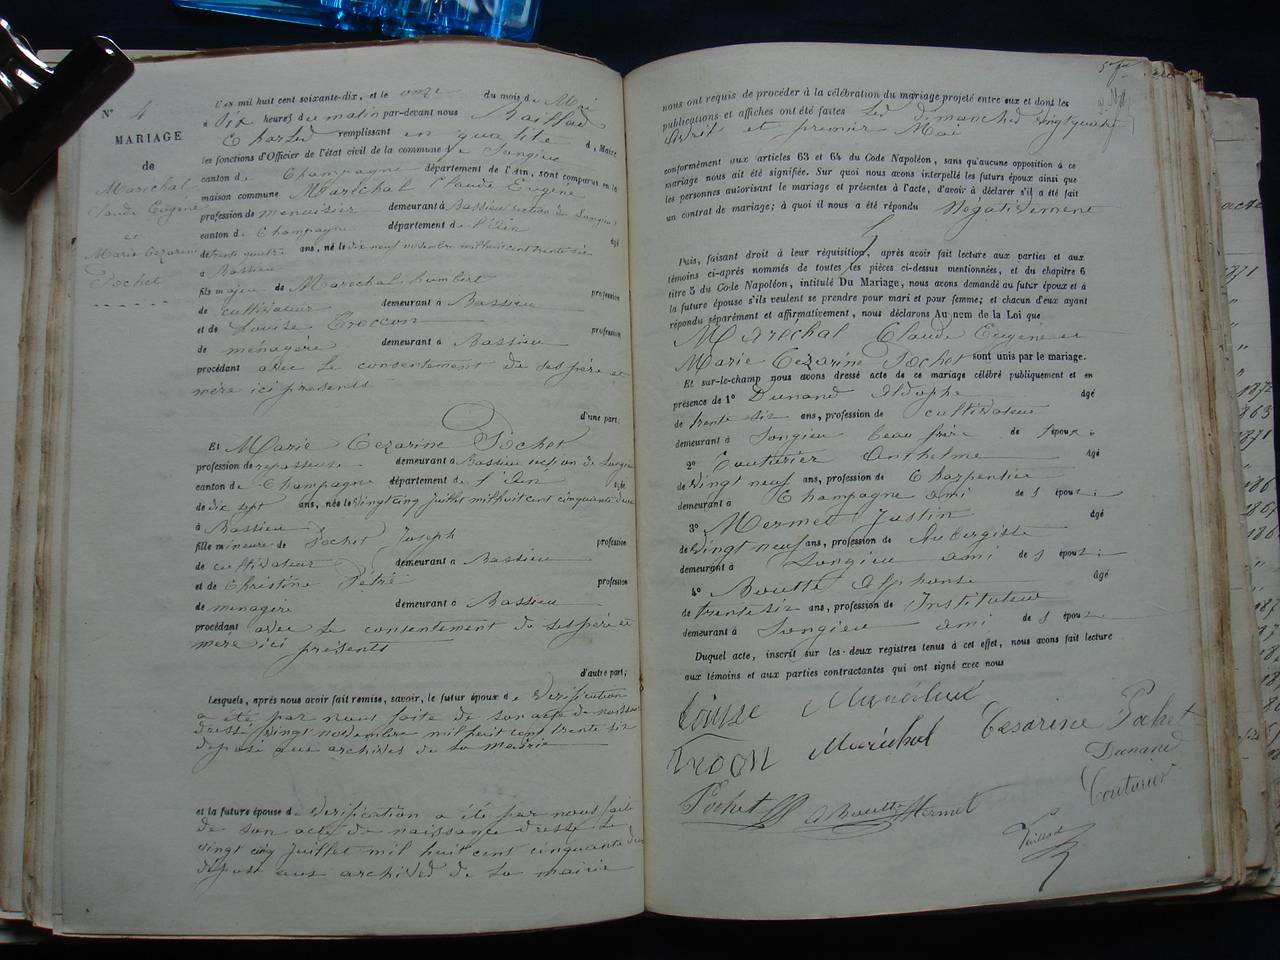 N° 4
MARIAGE
de
Maréchal
Claude Eugène
et
Marie Cezarine
Pochet
L'an mil huit cent soixante-dix, et le onze du mois de Mai
à Dix heures du matin par-devant nous
Charles remplissant en qualité de, Maire
les fonctions d'Officier de l'état civil de la commune de Songieu
canton de Champagne département de l'Ain, sont comparus en la
maison commune Maréchal Claude Eugène
profession de menuisier demeurant à Bassieu section de Songieu
canton de Champagne département de l'Ain âgé
de trente quatre ans, né le dix neuf novembre mil huit cent trente six
à Bassieu
fils majeur de Maréchal humbert profession
de cultivateur demeurant à Bassieu
et de Louise profession
de ménagère demeurant à Bassieu
procédant avec le consentement de ses père et
mère ici présents
d'une part;
Et Marie Cezarine Pochet
profession de repasseuse demeurant à Bassieu section de Songieu
canton de Champagne département de l'Ain âgée
de dix sept ans, née le vingt cinq juillet mil huit cent cinquante deux
à Bassieu
fille mineure de Pochet Joseph profession
de cultivateur demeurant à Bassieu
et de Christine profession
de ménagère demeurant à Bassieu
procédant avec le consentement de ses père et
mère ici présents
d'autre part;
Lesquels, après nous avoir fait remise, savoir, le futur époux de Vérification
a été par nous faite de son acte de naissance
dressé vingt novembre mil huit cent trente six
déposé aux archives de la mairie
et la future épouse de Vérification a été par nous faite
de son acte de naissance dressé le
vingt cinq juillet mil huit cent cinquante deux
déposé aux archives de la mairie
nous ont requis de procéder à la célébration du mariage projeté entre eux et dont les
publications et affiches ont été faites les dimanches vingt quatre
Avril et premier Mai
conformément aux articles 63 et 64 du Code Napoléon, sans qu'aucune opposition à ce
mariage nous ait été signifiée. Sur quoi nous avons interpellé les futurs époux ainsi que
les personnes autorisant le mariage et présentes à l'acte, d'avoir à déclarer s'il a été fait
un contrat de mariage; à quoi il nous a été répondu Négativement
Puis, faisant droit à leur réquisition, après avoir fait lecture aux parties et aux
témoins ci-après nommés de toutes les pièces ci-dessus mentionnées, et du chapitre 6
titre 5 du Code Napoléon, intitulé Du Mariage, nous avons demandé au futur époux et à
la future épouse s'ils veulent se prendre pour mari et pour femme; et chacun d'eux ayant
répondu séparément et affirmativement, nous déclarons Au nom de la Loi que
Maréchal Claude Eugène et
Marie Cezarine Pochet sont unis par le mariage.
Et sur-le-champ nous avons dressé acte de ce mariage célébré publiquement et en
présence de 1° Dunand Adolphe âgé
de trente six ans, profession de cultivateur
demeurant à Songieu beau frère de l'époux.
2° Couturier Anthelme âgé
de vingt neuf ans, profession de Charpentier
demeurant à Champagne ami de l'époux;
3° Mermet Justin âgé
de vingt neuf ans, profession de Aubergiste
demeurant à Songieu ami de l'époux;
4° Bouitte Alphonse âgé
de trente six ans, profession de Instituteur
demeurant à Songieu ami de l'époux
Duquel acte, inscrit sur les deux registres tenus à cet effet, nous avons fait lecture
aux témoins et aux parties contractantes qui ont signé avec nous
Louise Maréchal
Cesarine Pochet
Maréchal
Dunand
Couturier
Pochet ABouitte Mermet